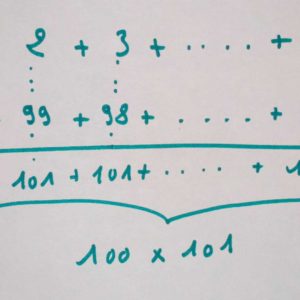 2 + 3 + ..... +
99 + 98 + ..... +
101 + 101 + ..... + 1
100 x 101